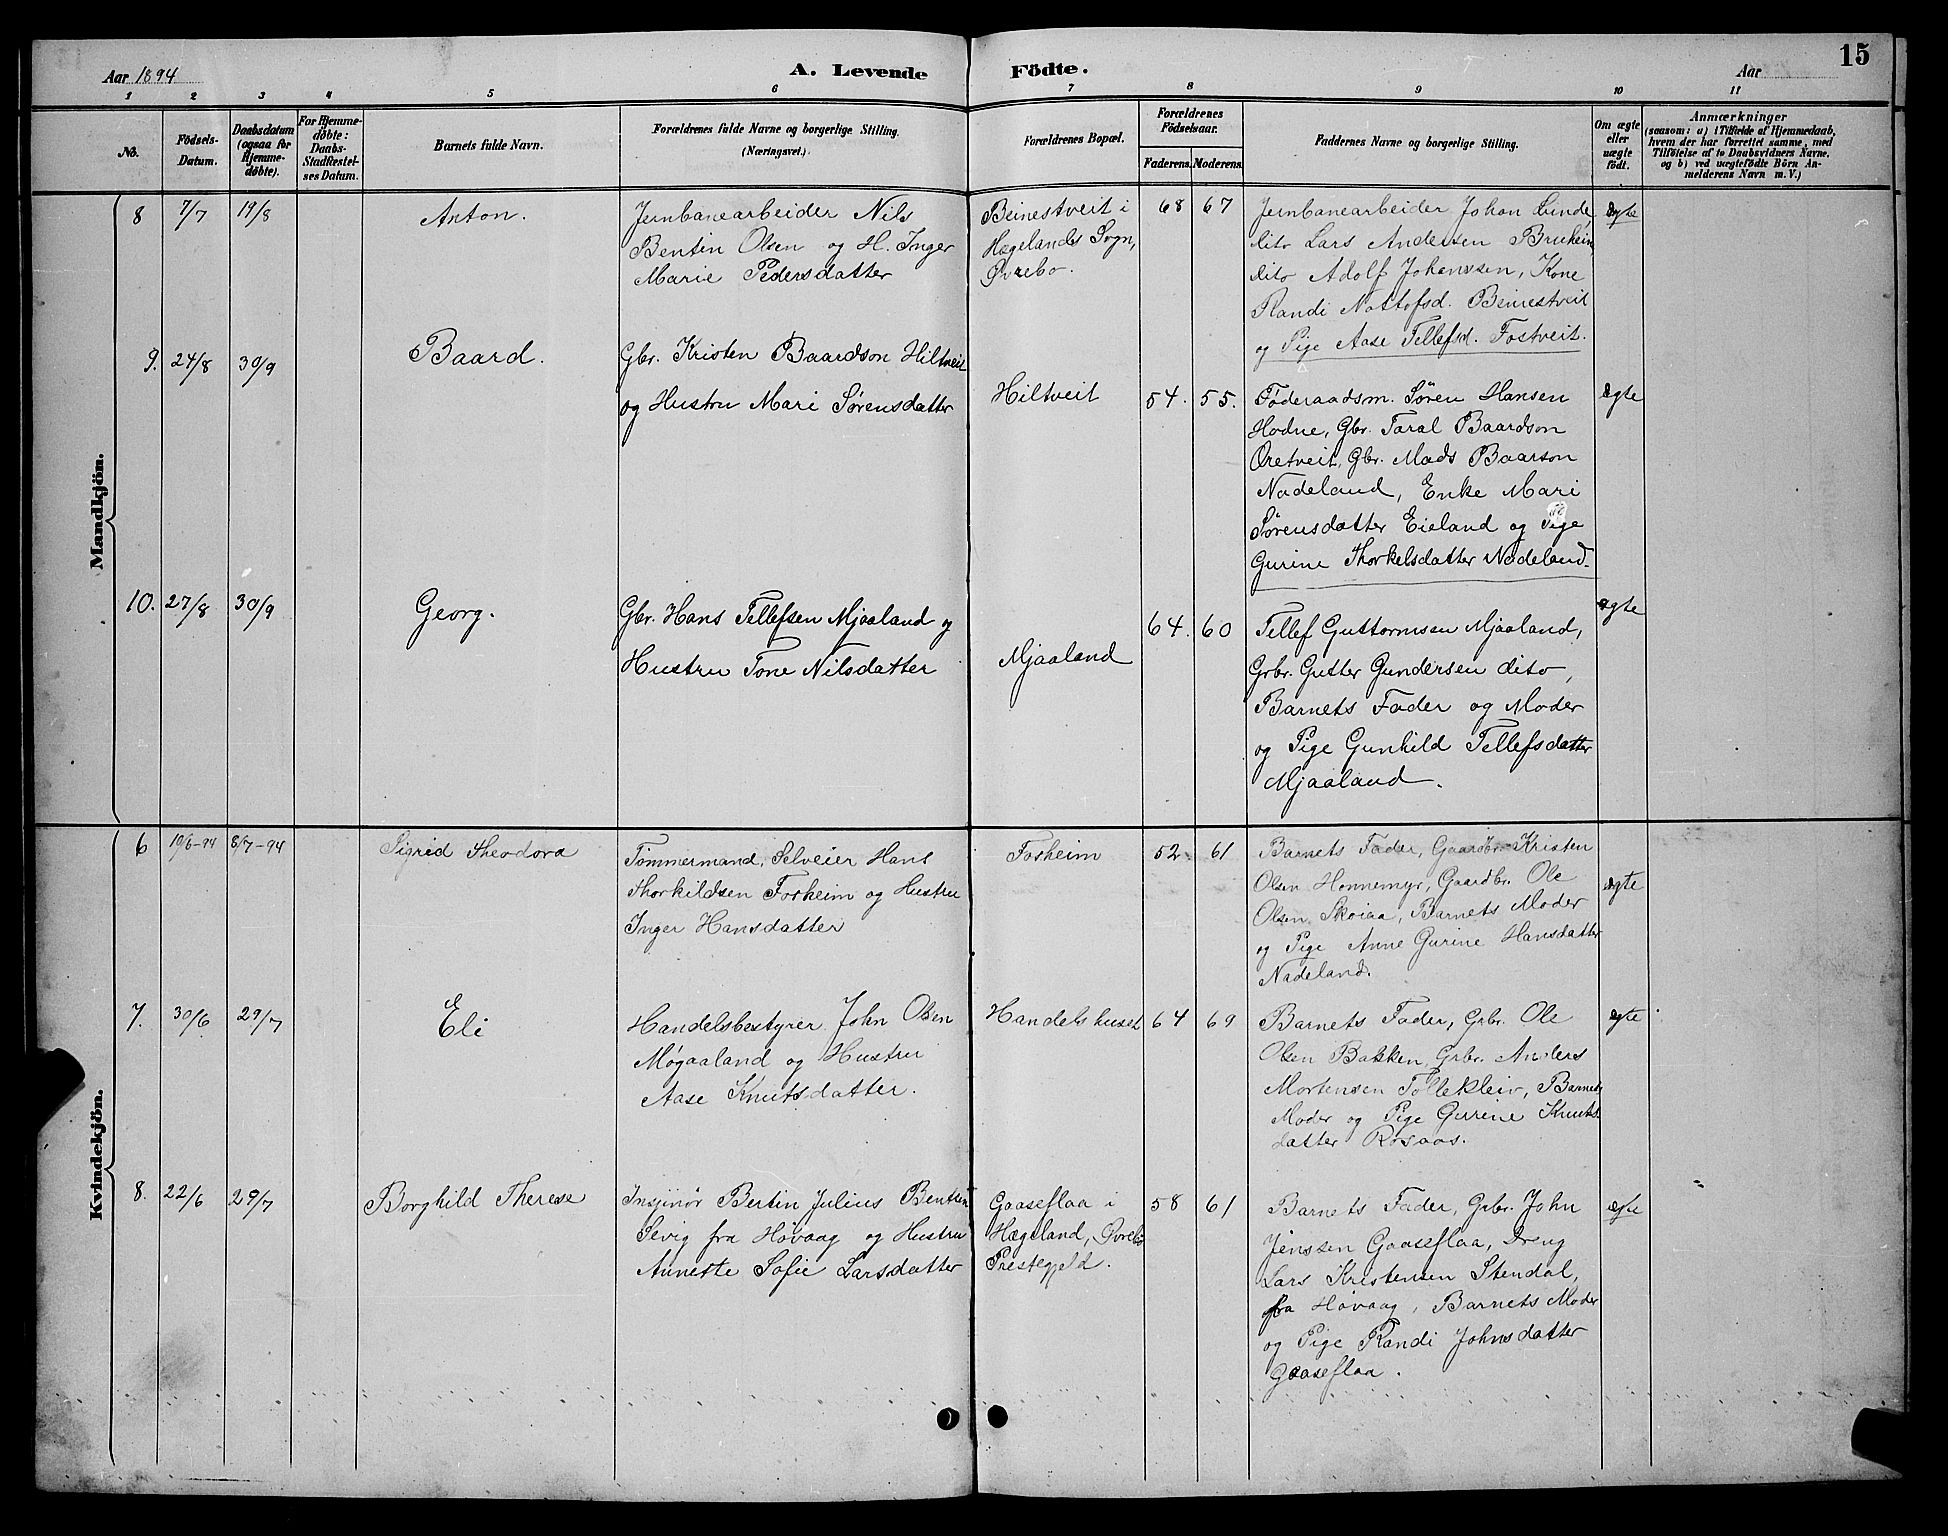 15
Aar 1894
A. Levende Födte.
Aar
1 2 3 4 5 6 7 8 9 10 11
No.
Födsels-
Datum.
Daabsdatum
(ogsaa for
Hjemme-
døbte).
For Hjemme-
døbte:
Daabs-
Stadfæstel-
ses Datum.
Barnets fulde Navn.
Forældrenes fulde Navne og borgerlige Stilling.
(Næringsvei.)
Forældrenes Bopæl.
Forældrenes
Födselsaar.
Faderens. Moderens.
Faddernes Navne og borgerlige Stilling.
Om ægte
eller
uægte
født.
Anmærkninger
(saasom: a) i Tilfælde af Hjemmedaab,
hvem der har forrettet samme, med
Tilføielse af to Daabsvidners Navne,
og b) ved uægtefödte Börn An-
melderens Navn m. V.)
Mandkjön.
8 7/7 19/8
Anton.
Jernbanearbeider Nils
Bentin Olsen og H. Inger
Marie Pedersdatter
Beinestveit i
Hægelands Sogn,
Øvrebo.
68 67
Jernbanearbeider Johan Linde,
dito Lars Andersen Bruheim,
dito Adolf Johanssen, Kone
Randi Nottofsd. Beinestveit
og Pige Aase Tellefsd. Fostveit.
ægte
9. 24/8 30/9
Baard.
Gbr. Kristen Baardson Hiltveit
og Hustru Mari Sørensdatter
Hiltveit
54. 55.
Føderaadsm. Søren Hansen
Hodne, Gbr. Taral Baardson
Øretveit, Gbr. Mads Baarson
Nadeland, Enke Mari
Sørensdatter Eieland og Pige
Gurine Thorkelsdatter Nadeland.
ægte
10. 27/8 30/9
Georg.
Gbr. Hans Tellefsen Mjaaland og
Hustru Tone Nilsdatter
Mjaaland
64. 60
Tellef Guttormsen Mjaaland,
Grbr. Gutter Gundersen dito,
Barnets Fader og Moder
og Pige Gunhild Tellefsdatter
Mjaaland.
ægte
Kvindekjön.
6 19/6-94 8/7-94
Sigrid Theodora
Tømmermand, Selveier Hans
Thorkildsen Forheim og Hustru
Inger Hansdatter
Forheim
52. 61
Barnets Fader, Gaardbr. Kristen
Olsen Honnemyr, Gaardbr. Ole
Olsen Skoiaa, Barnets Moder
og Pige Anne Gurine Hansdatter
Nadeland.
ægte
7. 30/6 29/7
Eli
Handelsbestyrer John Olsen
Møgaaland og Hustru
Aase Knutsdatter.
Handelshuset
64 69
Barnets Fader, Grbr. Ole
Olsen Bakken, Grbr. Anders
Mortensen Tollekleiv, Barnets
Moder og Pige Gurine Knuts-
datter Rosaas.
ægte
8. 22/6 29/7
Borghild Therese
Insjinør Bertin Julius Bentsen
Sevig fra Høvaag og Hustru
Annette Sofie Larsdatter
Gaaseflaa i
Hægeland, Øvrebø
Prestegjeld.
58 61
Barnets Fader, Grbr. John
Jenssen Gaaseflaa, Dreng
Lars Kristensen Stendal,
fra Høvaag, Barnets Moder
og Pige Randi Johnsdatter
Gaaseflaa.
ægte